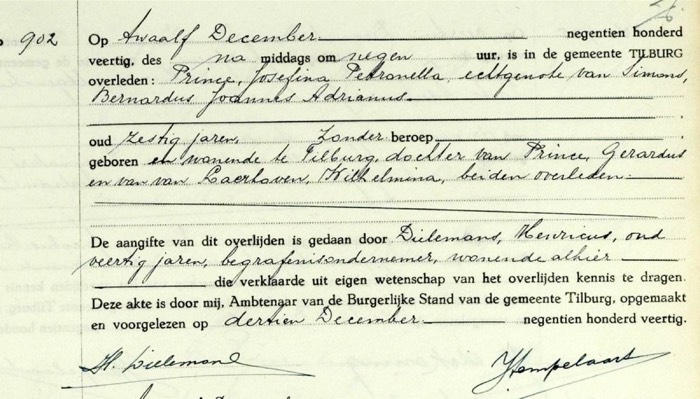 902 Op twaalf December negentien honderd
veertig, des na middags om negen uur, is in de gemeente TILBURG
overleden: Prince, Josefina Petronella, echtgenote van Simons,
Bernardus Joannes Adrianus
oud zestig jaren, zonder beroep
geboren en wonende te Tilburg, dochter van Prince, Gerardus
en van van Laerhoven, Wilhelmina, beiden overleden
De aangifte van dit overlijden is gedaan door Dielemans, Henricus, oud
veertig jaren, begrafenisondernemer, wonende alhier
die verklaarde uit eigen wetenschap van het overlijden kennis te dragen.
Deze akte is door mij, Ambtenaar van de Burgerlijke Stand van de gemeente Tilburg, opgemaakt
en voorgelezen op dertien December negentien honderd veertig.